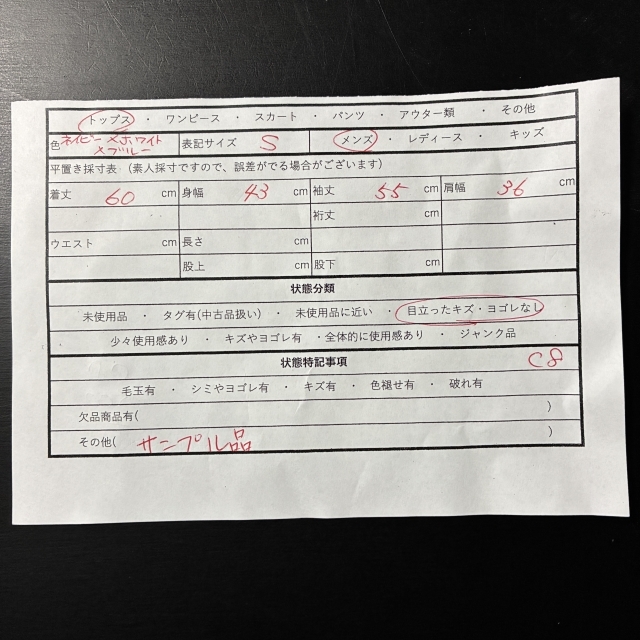 トップス ・ ワンピース ・ スカート ・ パンツ ・ アウター類 ・ その他
色 ネイビー×ホワイト×ブルー 表記サイズ S メンズ ・ レディース ・ キッズ
平置き採寸表 (素人採寸ですので、誤差がでる場合がございます)
着丈 60 cm 身幅 43 cm 袖丈 55 cm 肩幅 36 cm
裄丈 cm
ウエスト cm 長さ cm
股上 cm 股下 cm
状態分類
未使用品 ・ タグ有(中古品扱い) ・ 未使用品に近い ・ 目立ったキズ・ヨゴレなし
少々使用感あり ・ キズやヨゴレ有 ・全体的に使用感あり ・ ジャンク品
状態特記事項 C8
毛玉有 ・ シミやヨゴレ有 ・ キズ有 ・ 色褪せ有 ・ 破れ有
欠品商品有( )
その他( サンプル品 )